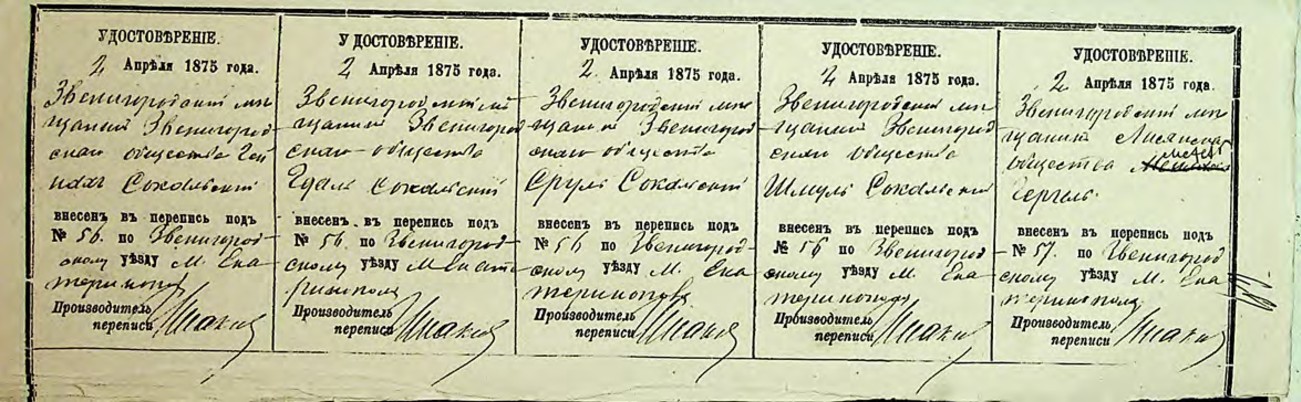 УДОСТОВѢРЕНІЕ.
2 Апрѣля 1875 года.
Звенигородскій мѣ-
щанинъ Звенигород-
скаго общества
Сокальскій
внесенъ въ перепись подъ
№ 56. по Звенигород-
скому уѣзду М. Ека-
теринополя
Производитель
переписи
УДОСТОВѢРЕНІЕ.
2 Апрѣля 1875 года.
Звенигородскій мѣ-
щанинъ Звенигород-
скаго общества
Гдаль Сокальскій
внесенъ въ перепись подъ
№ 56. по Звенигород-
скому уѣзду М. Екате-
ринополя
Производитель
переписи
УДОСТОВѢРЕНІЕ.
2 Апрѣля 1875 года.
Звенигородскій мѣ-
щанинъ Звенигород-
скаго общества
Сруль Сокальскій
внесенъ въ перепись подъ
№ 56 по Звенигород-
скому уѣзду М. Ека-
теринополя
Производитель
переписи
УДОСТОВѢРЕНІЕ.
2 Апрѣля 1875 года.
Звенигородскій мѣ-
щанинъ Звенигород-
скаго общества
Шмуль Сокальскій
внесенъ въ перепись подъ
№ 56 по Звенигород-
скому уѣзду М. Ека-
теринополя
Производитель
переписи
УДОСТОВѢРЕНІЕ.
2 Апрѣля 1875 года.
Звенигородскій мѣ-
щанинъ Лисянскаго
общества
внесенъ въ перепись подъ
№ 57. по Звенигород-
скому уѣзду М. Ека-
теринополя
Производитель
переписи